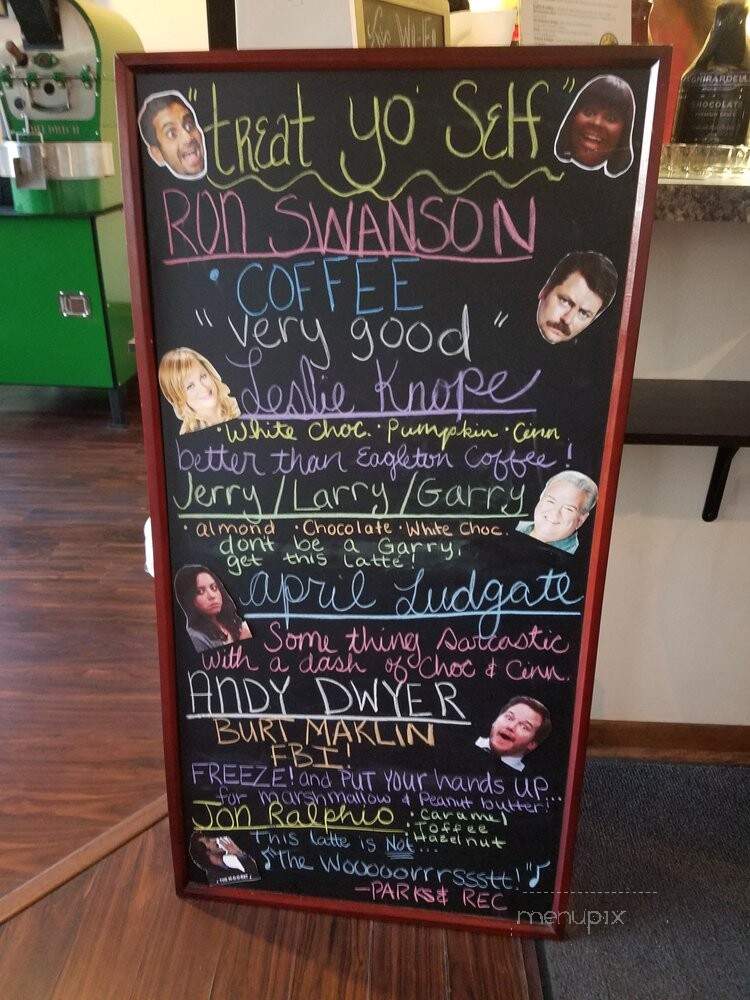 "treat yo' Self"
RON SWANSON
• COFFEE
"very good"
Leslie Knope
• White Choc. • Pumpkin • Cinn
better than Eagleton Coffee!
Jerry/Larry/Garry
• almond • Chocolate • White Choc.
don't be a Garry,
get this latte!
april Ludgate
Some thing Sarcastic
with a dash of Choc & Cinn.
ANDY DWYER
BURT MAKLIN
FBI!
FREEZE! and PUT YOUR hands UP...
for marshmallow & Peanut butter!
Jon Ralphio
• Caramel
• Toffee
• Hazelnut
This latte is Not...
♪"The Wooooorrrssstt!"♪
-PARKS & REC
menupix
GHIRARDELLI
CHOCOLATE